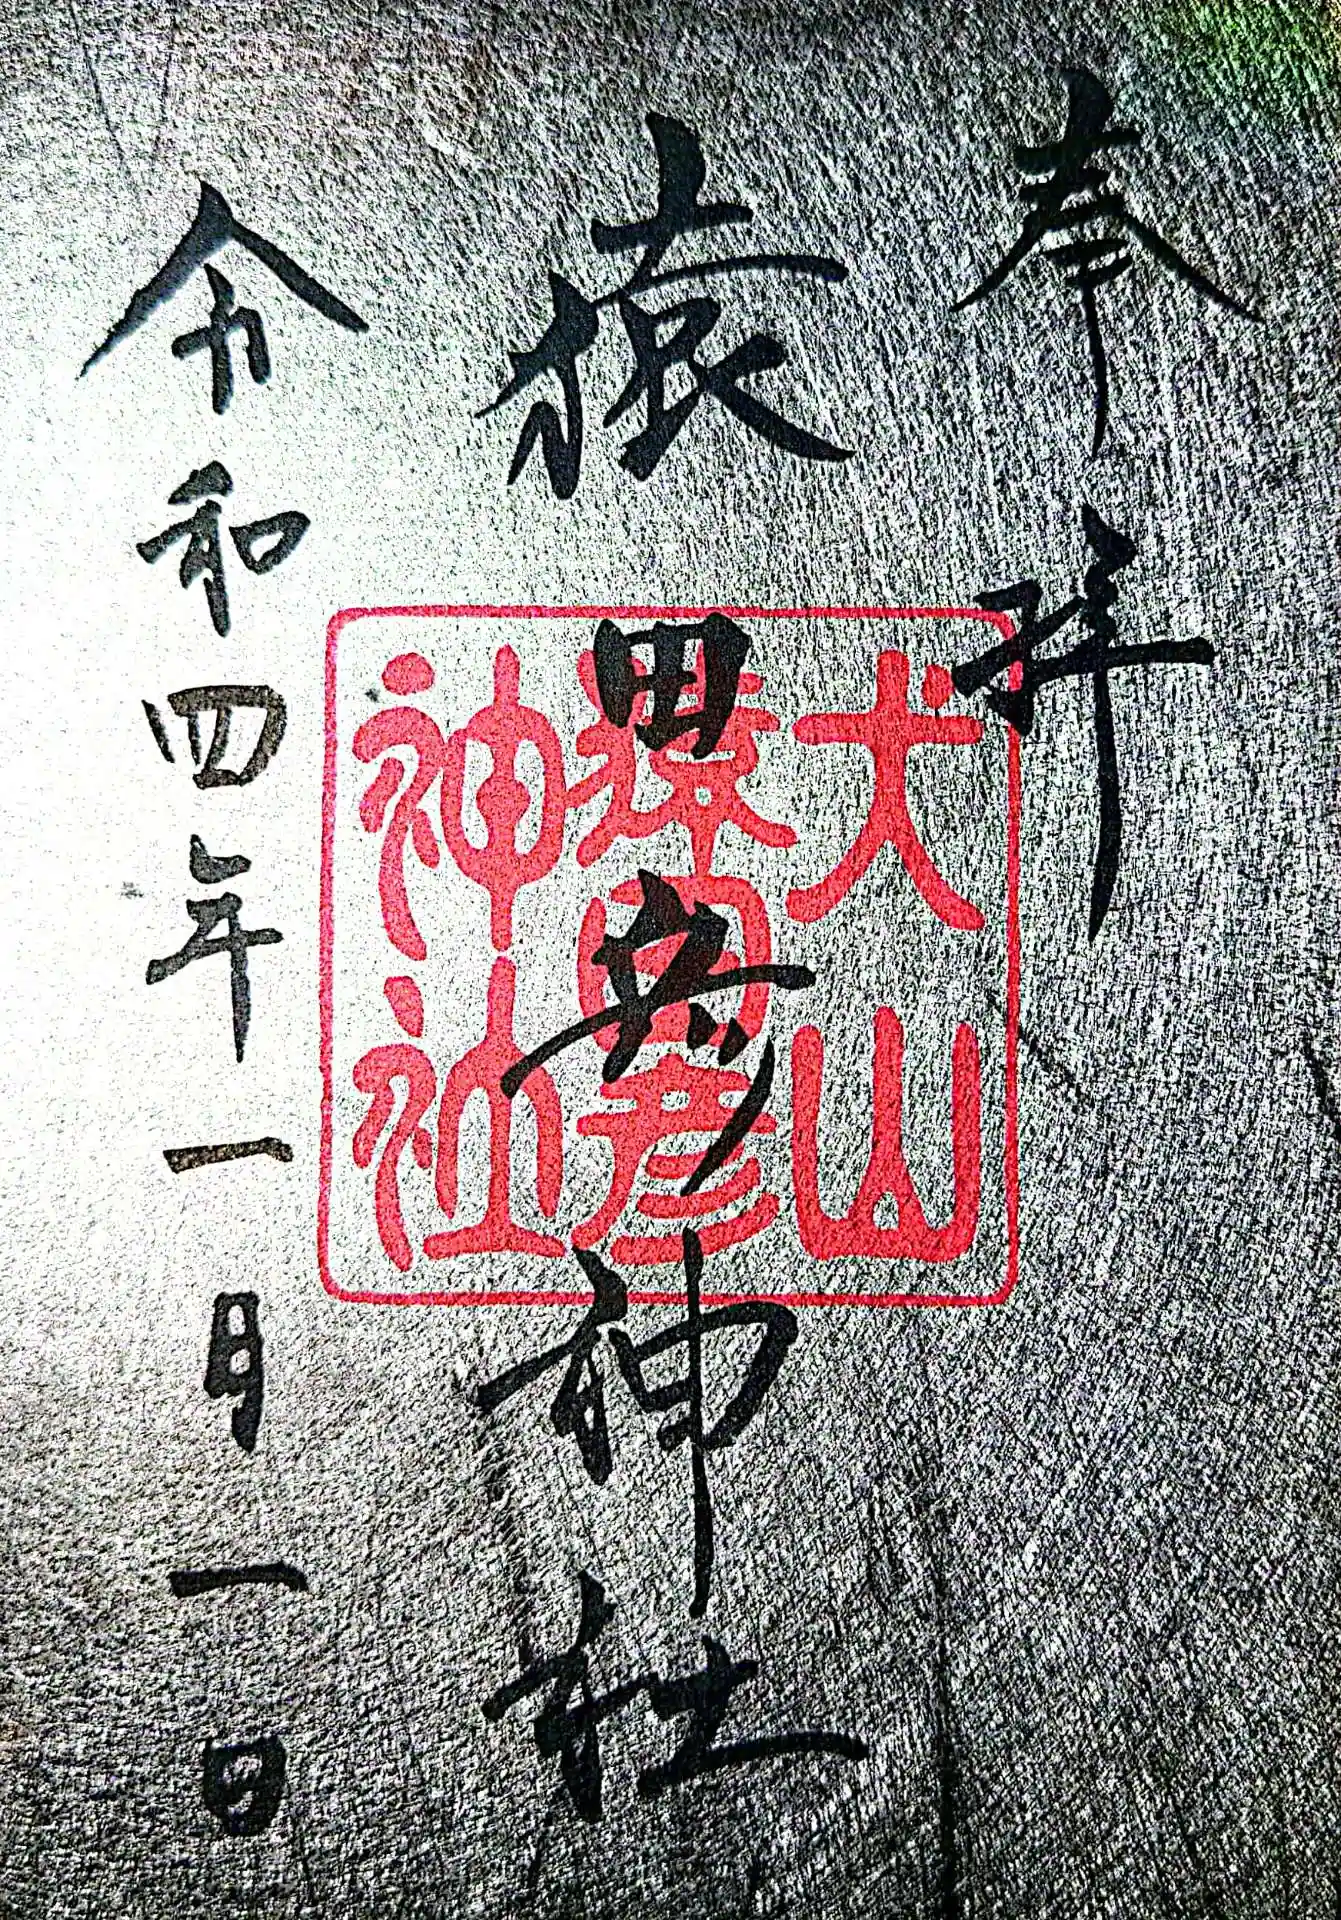 奉拝
猿田彦神社
犬山
猿田彦
神社
令和四年一月一日